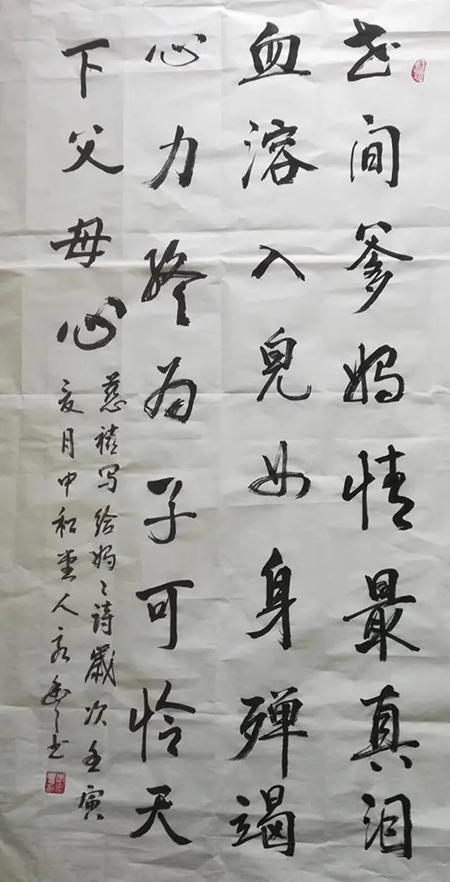 世间爹妈情最真泪
血溶入兒女身殚竭
心力终为子可怜天
下父母心
慈禧写给妈々詩歲次壬寅
夏月中和堂人书